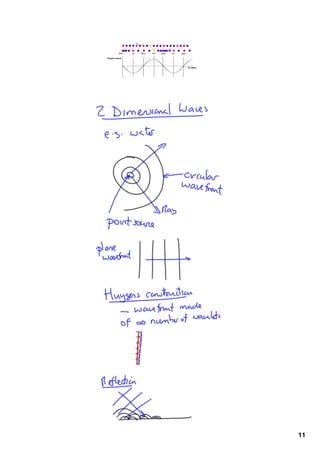 2 Dimensional Waves
e.g. water
circular
wavefront
Ray
point source
plane
wavefront
Huygens construction
– wavefront made
of ∞ number of wavelets
Reflection
11